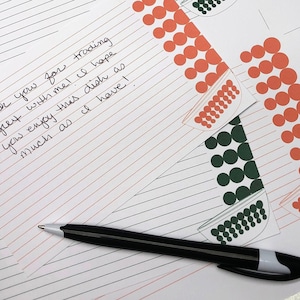 you for trading
with me! I hope
you enjoy this dish as
much as I have!